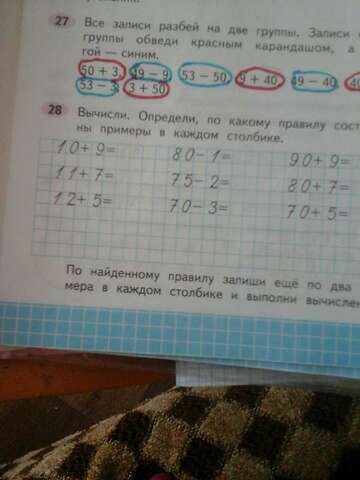 27 Все записи разбей на две группы. Записи
группы обведи красным карандашом, а
гой — синим.
50 + 3 49 − 9 53 − 50 9 + 40 49 − 40 40
53 − 3 3 + 50
28 Вычисли. Определи, по какому правилу сост
ны примеры в каждом столбике.
10+ 9= 80− 1= 90+ 9=
11+ 7= 75− 2= 80+ 7=
12+ 5= 70− 3= 70+ 5=
По найденному правилу запиши ещё по два
мера в каждом столбике и выполни вычислен